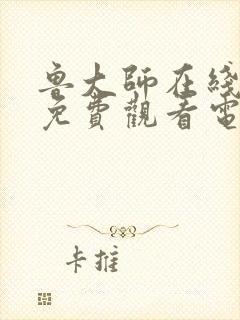 鲁大師在綫
免費觀看電
卡推